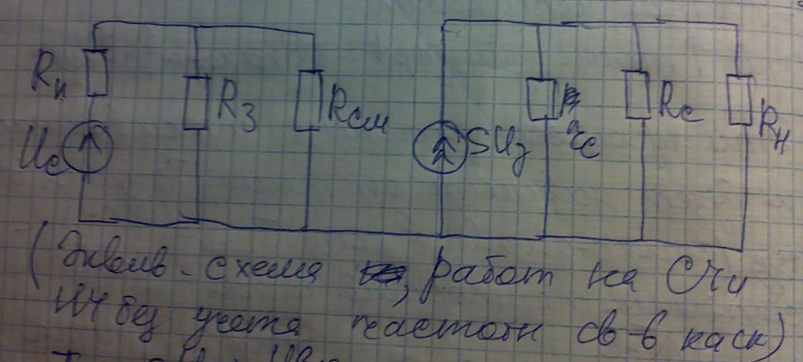 Rи
R3
Rсм
Uc
SUз
rc
Rc
Rн
(Эквив. схема, работ на СЧ и
НЧ без учета частотн св-в каск)